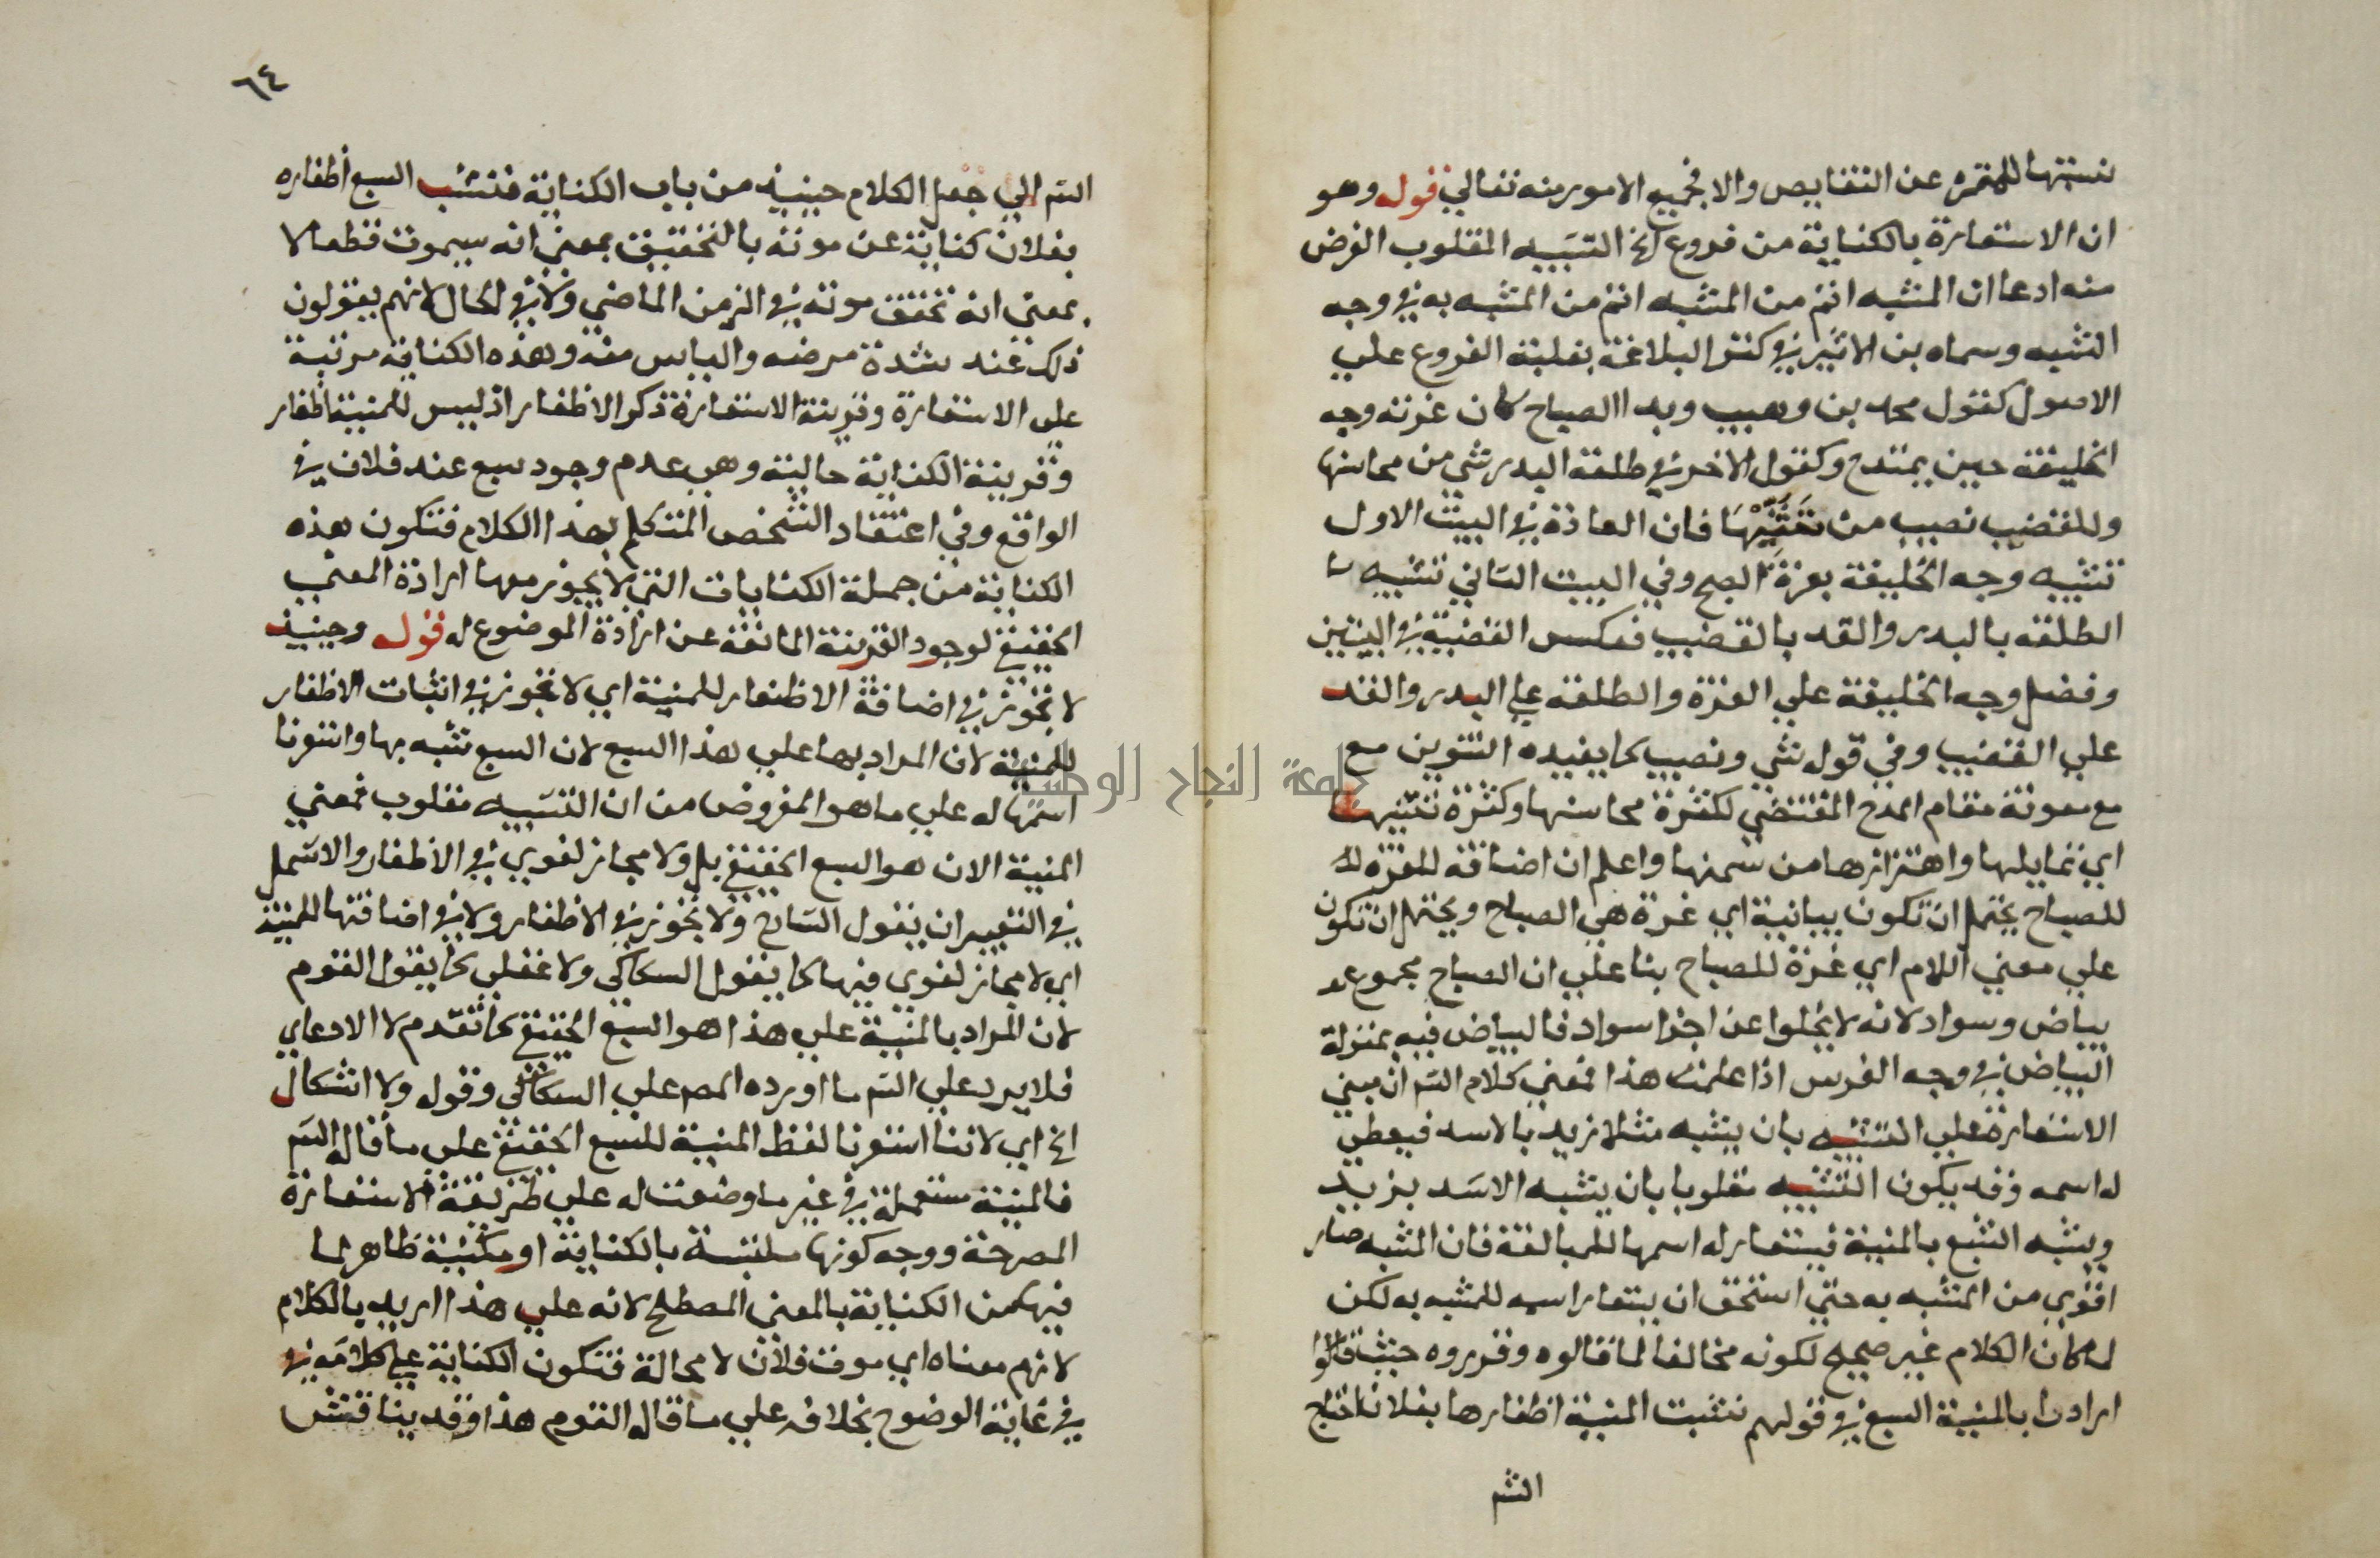 نسبتها للمتمرن عن النقايص والا فجميع الامور منه تعالي قوله وهو
ان الاستعارة بالكناية من فروع الخ التشبيه المقلوب الغرض
منه ادعا ان المشبه اتم من المشبه اتم من المشبه به في وجه
الشبه وسماه بن الاثير في كنز البلاغة بغلبة الفروع علي
الاصول كقول محمد بن وهيب وبدا الصباح كان غرته وجه
الخليفة حين يمتدح وكقول الاخر في طلعة البدر شي من محاسنها
وللقضيب نصيب من تثنيها فان العادة في البيت الاول
تشبيه وجه الخليفة بغرة الصبح وفي البيت الثاني تشبيه
الطلعة بالبدر والقد بالقضيب فعكس القضية في البيتين
وفضل وجه الخليفة علي الغرة والطلعة علي البدر والقد
علي القضيب وفي قوله شي ونصيب كما يفيده التنوين مع
مع معونة مقام المدح المقتضي لكثرة محاسنها وكثرة تثنيها
اي تمايلها واهتزازها من سمنها واعلم ان اضافة للغرة
للصباح يحتمل ان تكون بيانية اي غرة هي الصباح ويحتمل ان تكون
علي معني اللام اي غرة للصباح بنا علي ان الصباح مجموع
بياض وسواد لانه لا يخلوا عن اجزا سواد فالبياض فيه بمنزلة
البياض في وجه الفرس اذا علمت هذا فمعني كلام الشم ان مبني
الاستعارة علي التشبيه بان يشبه مثلا زيد بالاسد فيعطي
له اسمه وقد يكون التشبيه مقلوبا بان يشبه الاسد بزيد
ويشبه السبع بالمنية فيستعار له اسمها للمبالغة فان المشبه صار
اقوي من المشبه به حتي استحق ان يستعار اسمه للمشبه به لكن
لما كان الكلام غير صحيح لكونه مخالفا لما قالوه وقرروه حيث قالوا
ارادوا بالمنية السبع في قولهم نشبت المنية اظفارها بفلان احتاج
الشم
٦٤
الشم الي جعل الكلام حينيذ من باب الكناية فنشب السبع أظفاره
بفلان كناية عن موته بالتحقيق بمعني انه سيموت قطعا لا
بمعني انه تحقق موته في الزمن الماضي ولا في الحال لانهم يقولون
ذلك عند شدة مرضه والياس منه وهذه الكناية مرتبة
علي الاستعارة وقرينة الاستعارة ذكر الاظفار اذ ليس للمنية اظفار
وقرينة الكناية حالية وهي عدم وجود سبع عند فلان في
الواقع وفي اعتقاد الشخص المتكلم بهذا الكلام فتكون هذه
الكناية من جملة الكنايات التي لا يجوز معها ارادة المعني
الحقيقي لوجود القرينة المانعة عن ارادة الموضوع له قوله وحينيذ
لا تجوز في اضافة الاظفار للمنية اي لا تجوز في اثبات الاظفار
للمنية لان المراد بها علي هذا السبع لان السبع شبه بها واستعرنا
اسمها له علي ما هو المفروض من ان التشبيه مقلوب فمعني
المنية الان هو السبع الحقيقي بل ولا مجاز لغوي في الاظفار والاشمل
في التعبير ان يقول الشارح ولا تجوز في الاظفار ولا في اضافتها للمنية
اي لا مجاز لغوي فيها كما يقول السكاكي ولا عقلي كما يقول القوم
لان المراد بالمنية علي هذا هو السبع الحقيقي كما تقدم لا الادعاي
فلا يرد علي الشم ما اورده المصر علي السكاكي وقوله ولا اشكال
الخ اي لاننا استعرنا لفظ المنية للسبع الحقيقي علي ما قاله الشم
فالمنية مستعملة في غير ما وضعت له علي طريقة الاستعارة
المصرحة ووجه كونها ملتبسة بالكناية او مكنية ظاهر لما
فيها من الكناية بالمعني المصطلح لانه علي هذا اريد بالكلام
لازم معناه اي موت فلان لا محالة فتكون الكناية علي كلامه في
في غاية الوضوح بخلافه علي ما قاله القوم هذا وقد يناقش